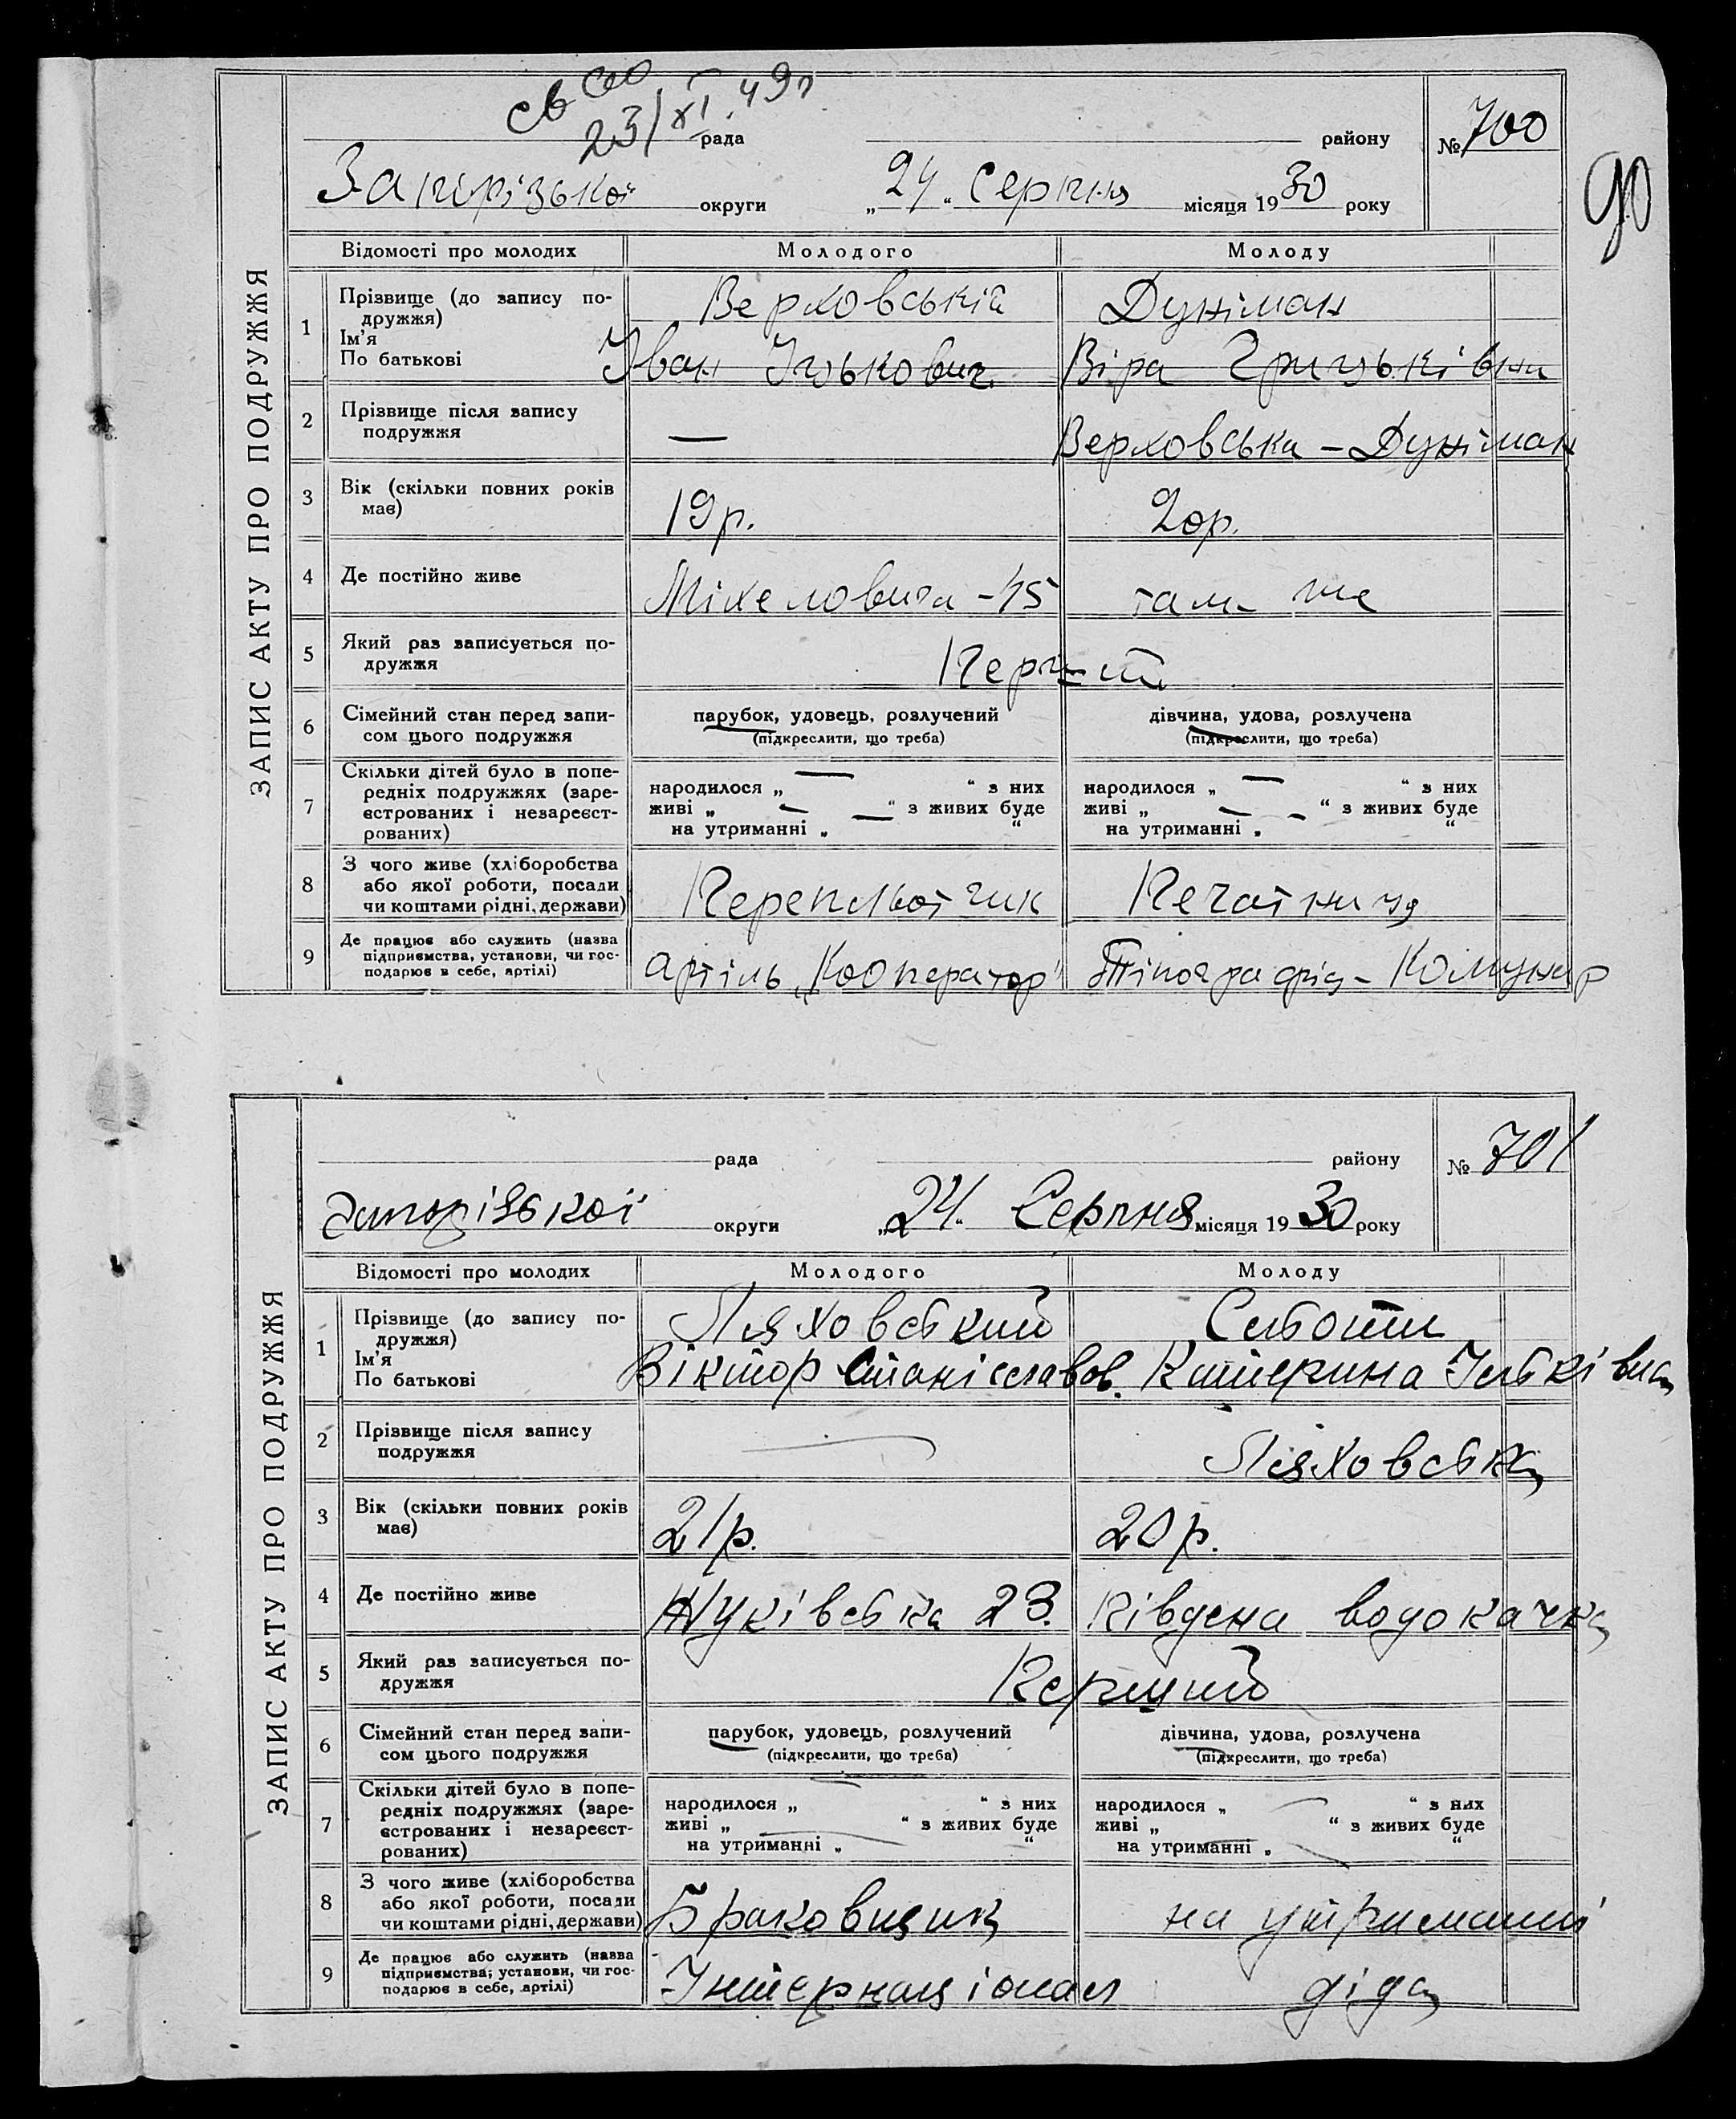 св
23/XI.49р
рада району № 700
Запорізької округи „24“ Серпня місяця 1930 року
90
ЗАПИС АКТУ ПРО ПОДРУЖЖЯ
Відомості про молодих Молодого Молоду
1 Прізвище (до запису по-
дружжя)
Верховській Дуніман
Ім'я
По батькові
Іван Ицькович Віра Грицьківна
2 Прізвище після запису
подружжя
— Верховська – Дуніман
3 Вік (скільки повних років
має)
19р. 20р.
4 Де постійно живе Міхеловича - 45 там же
5 Який раз записується по-
дружжя
6 Сімейний стан перед запи-
сом цього подружжя
парубок, удовець, розлучений
(підкреслити, що треба)
дівчина, удова, розлучена
(підкреслити, що треба)
7 Скільки дітей було в попе-
редніх подружжях (заре-
єстрованих і незареєст-
рованих)
народилося „ — “ з них
живі „ — “ з живих буде
на утриманні „ — “
народилося „ — “ з них
живі „ — “ з живих буде
на утриманні „ - “
8 З чого живе (хліборобства
або якої роботи, посади
чи коштами рідні, держави)
Перепльотчик Печатниця
9 Де працює або служить (назва
підприємства, установи, чи гос-
подарює в себе, артілі)
артіль „Кооператор" Тіпографія - Комунар
рада району № 701
Запорізької округи „24“ Серпня місяця 1930 року
ЗАПИС АКТУ ПРО ПОДРУЖЖЯ
Відомості про молодих Молодого Молоду
1 Прізвище (до запису по-
дружжя)
Ляховський
Ім'я
По батькові
Віктор Станіславов. Катерина Ільківна
2 Прізвище після запису
подружжя
— Ляховська
3 Вік (скільки повних років
має)
21р. 20р.
4 Де постійно живе Жуківська 23. Південа водокачка
5 Який раз записується по-
дружжя
Перший
6 Сімейний стан перед запи-
сом цього подружжя
парубок, удовець, розлучений
(підкреслити, що треба)
дівчина, удова, розлучена
(підкреслити, що треба)
7 Скільки дітей було в попе-
редніх подружжях (заре-
єстрованих і незареєст-
рованих)
народилося „ “ з них
живі „ “ з живих буде
на утриманні „ “
народилося „ “ з них
живі „ “ з живих буде
на утриманні „ “
8 З чого живе (хліборобства
або якої роботи, посади
чи коштами рідні, держави)
Браковщик на утриманні
9 Де працює або служить (назва
підприємства; установи, чи гос-
подарює в себе, артілі)
Інтернаціонал діда